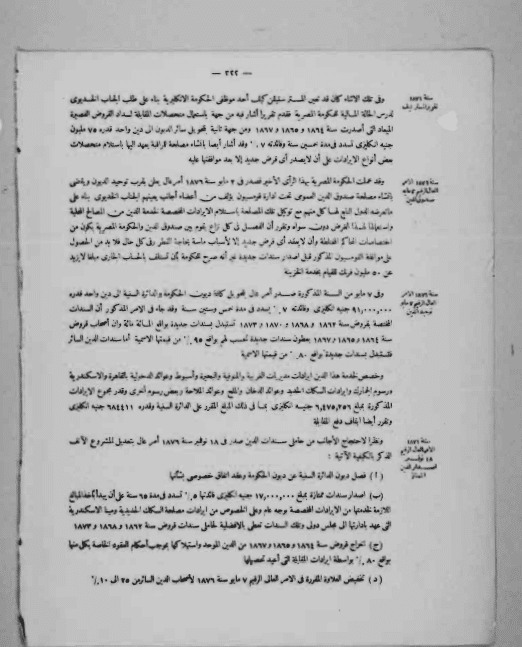 — ٢٢٢ —
سنة ١٨٧٦
تقرير المستر كيف
وفى تلك الاثناء كان قد تعين المستر ستيفن كيف أحد موظفى الحكومة الانكليزية بناء على طلب الجناب الخديوى
لدرس الحالة المالية للحكومة المصرية فقدم تقريرا أشار فيه من جهة باستعمال متحصلات المقابلة لسداد القروض القصيرة
الميعاد التى أصدرت سنة ١٨٦٤ و ١٨٦٥ و ١٨٦٧ ومن جهة ثانية بتحويل سائر الديون الى دين واحد قدره ٧٥ مليون
جنيه انكليزى تسدد فى مدة خمسين سنة وفائدته ٧ ٪ وقد أشار أيضا بانشاء مصلحة للمراقبة يعهد اليها باستلام متحصلات
بعض أنواع الايرادات على أن لا يصدر أى قرض جديد إلا بعد موافقتها عليه
سنة ١٨٧٦ الامر
العالى الرقيم ٢ مايو
صندوق الدين
وقد عملت الحكومة المصرية بهذا الرأى الأخير فصدر فى ٢ مايو سنة ١٨٧٦ أمر عال يعلن بقرب توحيد الديون ويقضى
بانشاء مصلحة صندوق الدين العمومى تحت ادارة قومسيون يؤلف من أعضاء أجانب يعينهم الجناب الخديوى بناء على
ماتعرضه الدول التابع لها كل منهم مع توكيل تلك المصلحة باستلام الايرادات المخصصة لخدمة الدين من المصالح المحلية
واستعمالها لهذا الغرض دون سواه وتقرر أن الفصل فى كل نزاع يقوم بين صندوق الدين والحكومة المصرية يكون من
اختصاصات المحاكم المختلطة وأن لا يعقد أى قرض جديد إلا لأسباب ماسة بحاجة القطر وفى كل حال فلا بد من الحصول
على موافقة القومسيون المذكور قبل اصدار سندات جديدة غير أنه صرح للحكومة بأن تستلف بالحساب الجارى مبلغا لا يزيد
عن ٥٠ مليون فرنك للقيام بخدمة الخزينة
سنة ١٨٧٦ الامر
العالى الرقيم ٧ مايو
توحيد الدين
وفى ٧ مايو من السنة المذكورة صدر أمر عال بتحويل كافة ديون الحكومة والدائرة السنية الى دين واحد قدره
٩١,٠٠٠,٠٠٠ جنيه انكليزى وفائدته ٧ ٪ يسدد فى مدة خمس وستين سنة وقد جاء فى الامر المذكور أن السندات
المختصة بقروض سنة ١٨٦٢ و ١٨٦٨ و ١٨٧٠ و ١٨٧٣ تستبدل بسندات جديدة بواقع المائة مائة وان أصحاب قروض
سنة ١٨٦٤ و ١٨٦٥ و ١٨٦٧ يعطون سندات جديدة تحسب لهم بواقع ٩٥ ٪ من قيمتها الاسمية أما سندات الدين السائر
فتستبدل بسندات جديدة بواقع ٨٠ ٪ من قيمتها الاسمية
وخصص لخدمة هذا الدين ايرادات مديريات الغربية والمنوفية والبحيرة وأسيوط وعوائد الدخولية بالقاهرة والاسكندرية
ورسوم الجمارك وايرادات السكك الحديد وعوائد الدخان والملح وعوائد الملاحة وبعض رسوم أخرى وقدر مجموع الايرادات
المذكورة بمبلغ ٦,٤٧٥,٢٥٦ جنيه انكليزى بما فى ذلك المبلغ المقرر على الدائرة السنية وقدره ٦٨٤٤١١ جنيه انكليزى
وتقرر أيضا ايقاف دفع المقابلة
سنة ١٨٧٦
الامر العالى الرقيم
١٨ نوفمبر
ونظرا لاحتجاج الأجانب من حاملى سندات الدين صدر فى ١٨ نوفمبر سنة ١٨٧٦ أمر عال بتعديل المشروع الآنف
الذكر بالكيفية الآتية :
( ا ) فصل ديون الدائرة السنية عن ديون الحكومة وعقد اتفاق خصوصى بشأنها
(ب) اصدار سندات ممتازة بمبلغ ١٧,٠٠٠,٠٠٠ جنيه انكليزى فائدتها ٥ ٪ تسدد فى مدة ٦٥ سنة على أن يبدأ بأخذ المبالغ
اللازمة لخدمتها من الايرادات المخصصة بوجه عام وعلى الخصوص من ايرادات مصلحة السكك الحديدية ومينا الاسكندرية
التى عهد بادارتها الى مجلس دولى وتلك السندات تعطى بالافضلية لحاملى سندات قروض سنة ١٨٦٢ و ١٨٦٨ و ١٨٧٣
(ج) اخراج قروض سنة ١٨٦٤ و ١٨٦٥ و ١٨٦٧ من الدين الموحد واستهلاكها بموجب أحكام العقود الخاصة بكل منها
بواقع ٨٠ ٪ بواسطة ايرادات المقابلة التى أعيد تحصيلها
( د ) تخفيض العلاوة المقررة فى الامر العالى الرقيم ٧ مايو سنة ١٨٧٦ لأصحاب الدين السائر من ٢٥ الى ١٠ ٪